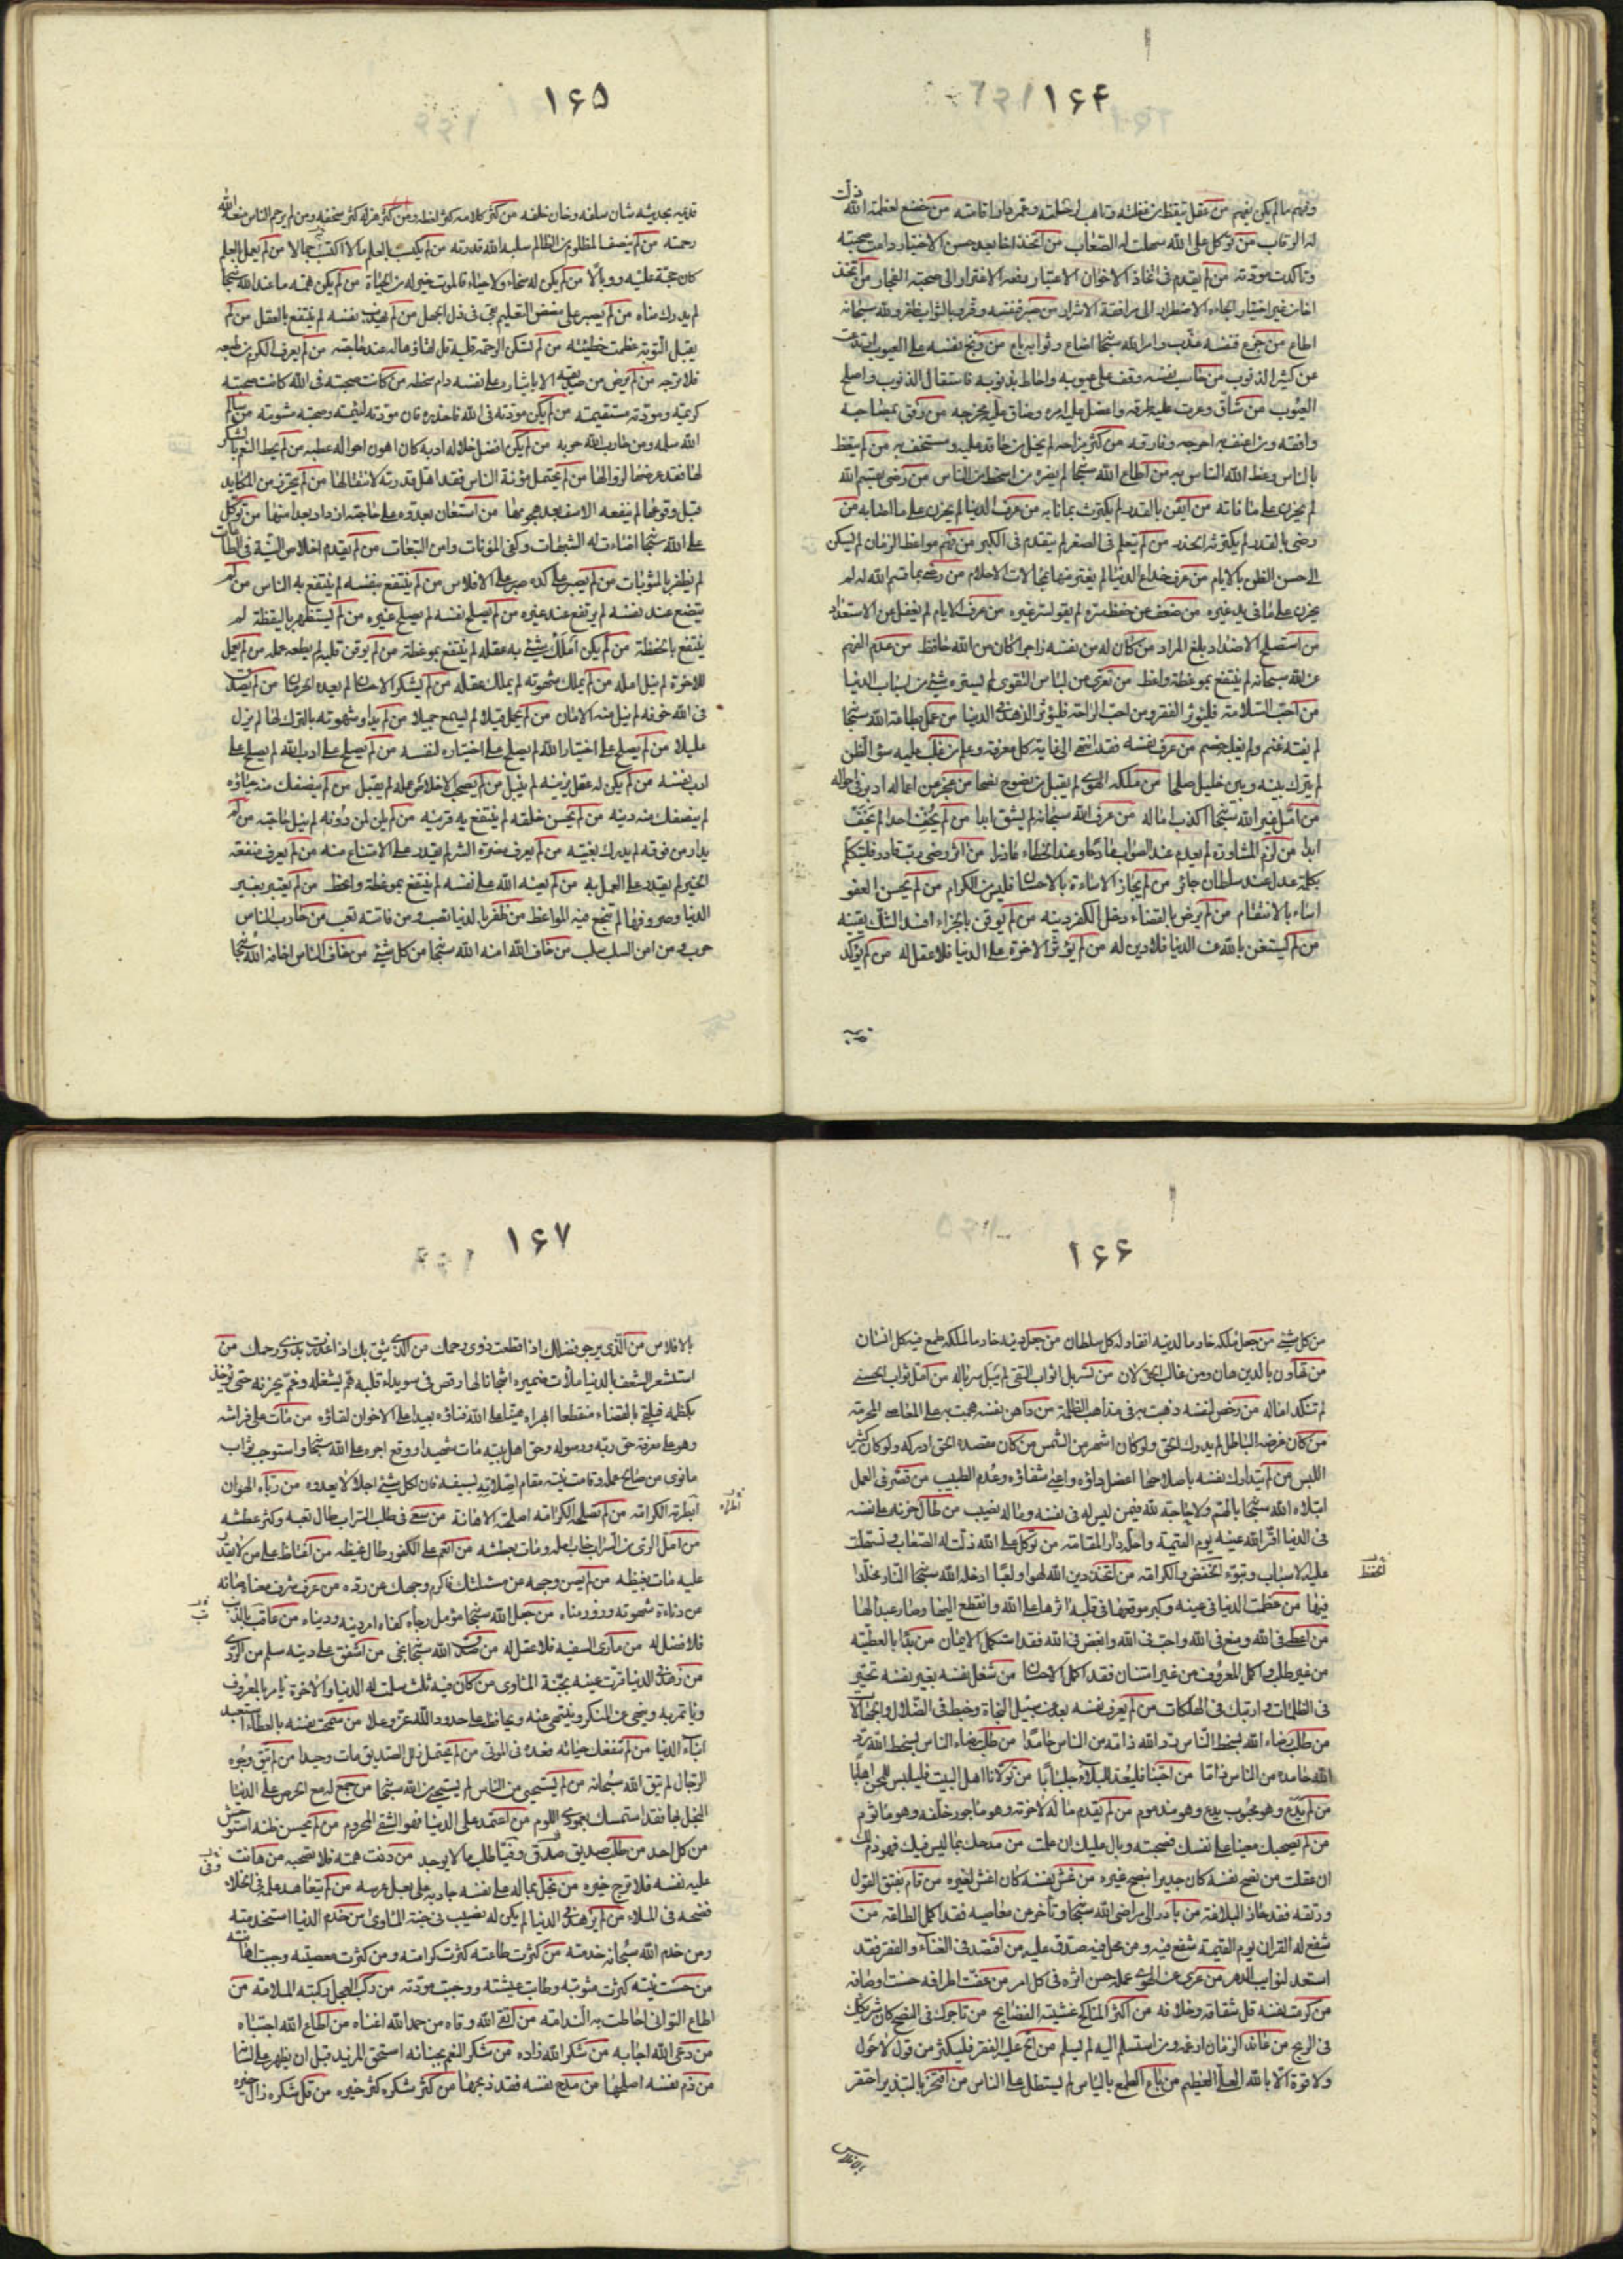 ۱۶۴
وفهم ما لم يكن يفهم من عقل تيقظ من غفلته وتاهب لرحلته وعمر دار اقامته من خضع لعظمة الله ذلت
له الرقاب من توكل على الله سهلت له الصعاب من اتخذ اخا بعد حسن الاختيار دامت صحبته
وتاكدت مودته من لم يقدم فى اتخاذ الاخوان الاعتبار دفعه الاغترار الى صحبة الفجار من اتخذ
اخا من غير اختبار الجاه الاضطرار الى مرافقة الاشرار من صبر فنفسه وقر وبالثواب ظفر ولله سبحانه
اطاع من جزع فنفسه عذب وامر الله سبحانه اضاع وثوابه باع من وبخ نفسه على العيوب ارتدعت
عن كثير الذنوب من حاسب نفسه وقف على عيوبه واحاط بذنوبه فاستقال الذنوب واصلح
العيوب من شاق وعرت عليه طرقه واعضل عليه امره وضاق عليه مخرجه من رفق بمصاحبه
وافقه ومن اعنف به احوجه وفارقه من كثر مزاحه لم يخل من حاقد عليه ومستخف به من لم يتعظ
بالناس وعظ الله الناس به من اطاع الله سبحانه لم يضره من اسخط من الناس من رضى بقسم الله
لم يحزن على ما فاته من ايقن بالقدر لم يكترث بما نابه من عرف الدنيا لم يحزن على ما اصابه من
رضى بالقدر لم يكرثه الحذر من لم يتعلم فى الصغر لم يتقدم فى الكبر من فهم مواعظ الزمان لم يسكن
الى حسن الظن بالايام من عرف خداع الدنيا لم يغتر منها بمحالات الاحلام من رضى بما قسم الله له لم
يحزن على ما فى يد غيره من ضعف عن حفظ سره لم يقو لسر غيره من عرف الايام لم يغفل عن الاستعداد
من استصلح الاضداد بلغ المراد من كان له من نفسه زاجر كان من الله حافظ من عدم الفهم
عن الله سبحانه لم ينتفع بموعظة واعظ من تعرى من لباس التقوى لم يستره شئ من لباس الدنيا
من احب السلامة فليؤثر الفقر ومن احب الراحة فليؤثر الزهد فى الدنيا من عمل بطاعة الله سبحانه
لم يفته غنم ولم يغلبه خصم من عرف نفسه فقد انتهى الى غاية كل معرفة وعلم من غلب عليه سوء الظن
لم يترك بينه وبين خليل صلحا من ملكه الهوى لم يقبل من نصوح نصحا من عجز عن اعماله ادبر فى احواله
من امل غير الله سبحانه اكذب اماله من عرف الله سبحانه لم يشق ابدا من لم يخف احدا لم يخف
ابدا من لزم المشاورة لم يعدم عند الصواب مادحا وعند الخطاء عاذرا من اثر رضى رب قادر فليتكلم
بكلمة عدل عند سلطان جائر من لم يجاز الاساءة بالاحسان فليس من الكرام من لم يحسن العفو
اساء بالانتقام من لم يرض بالقضاء دخل الكفر دينه من لم يوقن بالجزاء افسد الشك يقينه
من لم يستغن بالله عن الدنيا فلا دين له من لم يؤثر الاخرة على الدنيا فلا عقل له من لم يؤكد
قديمه
۱۶۵
قديمه بحديثه شان سلفه وخان خلفه من كثر كلامه كثر لغطه ومن كثر هزله كثر سخفه ومن لم يرحم الناس منعه الله
رحمته من لم ينصف المظلوم من الظالم سلبه الله قدرته من لم يكتسب بالعلم مالا اكتسب جمالا من لم يعمل بالعلم
كان حجة عليه ووبالا من لم يكن له سخاء ولا حياء فالموت خير له من الحياة من لم يكن همه ما عند الله سبحانه
لم يدرك مناه من لم يصبر على مضض التعليم بقى فى ذل الجهل من لم يهذب نفسه لم ينتفع بالعقل من لم
يقبل التوبة عظمت خطيئته من لم تسكن الرحمة قلبه قل لقاؤها له عند حاجته من لم يعرف الكرم من طبعه
فلا ترجه من لم يرض من صديقه الا بايثاره على نفسه دام سخطه من كانت صحبته فى الله كانت صحبته
كريمة ومودته مستقيمة من لم يكن مودته فى الله فاحذره فان مودته لئيمة وصحبته مشومة من سالم
الله سلمه ومن حارب الله حربه من لم يكن افضل خلاله ادبه كان اهون احواله عطبه من لم يحط النعم بالشكر
لها فقد عرضها لزوالها من لم يحتمل مؤنة الناس فقد اهل قدرته لانتقالها من لم يحترز من المكايد
قبل وقوعها لم ينفعه الاسف بعد هجومها من استعان بعدوه على حاجته ازداد بعدا منها من توكل
على الله سبحانه اضاءت له الشبهات وكفى المؤنات وامن التبعات من لم يقدم اخلاص النية فى الطاعات
لم يظفر بالمثوبات من لم يصبر على كده صبر على الافلاس من لم ينتفع بنفسه لم ينتفع به الناس من لم
يتضع عند نفسه لم يرتفع عند غيره من لم يصلح نفسه لم يصلح غيره من لم يستظهر باليقظة لم
ينتفع بالحفظة من لم يكن املك شئ به عقله لم ينتفع بموعظة من لم يوقن قلبه لم يطعه عمله من لم يعمل
للاخرة لم ينل امله من لم يملك شهوته لم يملك عقله من لم يشكر الاحسان لم يعده الحرمان من لم يصدق
فى الله خوفه لم ينل منه الامان من لم يجمل قيلا لم يسمع جميلا من لم يداو شهوته بالترك لها لم يزل
عليلا من لم يصلح على اختيار الله لم يصلح على اختياره لنفسه من لم يصلح على ادب الله لم يصلح على
ادب نفسه من لم يكن له عقل يزينه لم ينبل من لم يصحب الاخلاص عمله لم يقبل من لم ينصفك منه حياؤه
لم ينصفك منه دينه من لم يحسن خلقه لم ينتفع به قرينه من لم يلن لمن دونه لم ينل حاجته من لم
يدار من فوقه لم يدرك بغيته من لم يعرف مضرة الشر لم يقدر على الامتناع منه من لم يعرف منفعة
الخير لم يقدر على العمل به من لم يعنه الله على نفسه لم ينتفع بموعظة واعظ من لم يعتبر بغير
الدنيا وصروفها لم تنجع فيه المواعظ من ظفر بالدنيا نصب ومن فاتته تعب من حارب الناس
حرب ومن امن السلب سلب من خاف الله امنه الله سبحانه من كل شئ من خاف الناس اخافه الله سبحانه
۱۶۶
من كل شئ من جعل ملكه خادما لدينه انقاد له كل سلطان من جعل دينه خادما لملكه طمع فيه كل انسان
من تهاون بالدين هان ومن غالب الحق لان من تسربل اثواب التقى لم يبل سرباله من امل ثواب الحسنى
لم تنكد اماله من رخص لنفسه ذهبت به فى مذاهب الظلمة من داهن نفسه هجمت به على المعاصى المحرمة
من كان غرضه الباطل لم يدرك الحق ولو كان اشهر من الشمس من كان مقصده الحق ادركه ولو كان كثير
اللبس من لم يتدارك نفسه باصلاحها اعضل داؤه واعيى شفاؤه وعدم الطبيب من قصر فى العمل
ابتلاه الله سبحانه بالهم ولا حاجة لله فيمن ليس له فى نفسه وماله نصيب من طال حزنه على نفسه
فى الدنيا اقر الله عينه يوم القيمة واحله دار المقامة من توكل على الله ذلت له الصعاب وتسهلت
عليه الاسباب وتبوء الخفض والكرامة من اتخذ دين الله لهوا ولعبا ادخله الله سبحانه النار مخلدا
فيها من عظمت الدنيا فى عينه وكبر موقعها فى قلبه اثرها على الله وانقطع اليها وصار عبدا لها
من اعطى فى الله ومنع فى الله واحب فى الله وابغض فى الله فقد استكمل الايمان من بدا بالعطية
من غير طلب واكمل المعروف من غير امتنان فقد اكمل الاحسان من شغل نفسه بغير نفسه تحير
فى الظلمات وارتبك فى الهلكات من لم يعرف نفسه بعد عن سبيل النجاة وخبط فى الضلال والجهالات
من طلب رضاء الله بسخط الناس رد الله ذامه من الناس حامدا من طلب رضاء الناس بسخط الله رد
الله حامده من الناس ذاما من احبنا فليعد للبلاء جلبابا من تولانا اهل البيت فليلبس للمحن اهابا
من لم يدع وهو محبوب يدع وهو مذموم من لم يقدم ماله لاخرته وهو ماجور خلفه وهو ماثوم
من لم يصحبك معينا على نفسك فصحبته وبال عليك ان علمت من مدحك بما ليس فيك فهو ذم لك
ان عقلت من نصح نفسه كان جديرا بنصح غيره من غش نفسه كان اغش لغيره من قام بفتق القول
ورتقه فقد حاز البلاغة من بادر الى مراضى الله سبحانه وتاخر عن معاصيه فقد اكمل الطاعة من
شفع له القران يوم القيمة شفع فيه ومن محل به صدق عليه من اقتصد فى الغناء والفقر فقد
استعد لنوايب الدهر من عرى عن الهوى عمله حسن اثره فى كل امر من عفت اطرافه حسنت اوصافه
من كرمت نفسه قل شقاقه وخلافه من اكثر المناكح غشيته الفضايح من تاجرك فى النصح كان شريكك
فى الربح من عاند الزمان ارغمه ومن استسلم اليه لم يسلم من الح عليه الفقر فليكثر من قول لا حول
ولا قوة الا بالله العلى العظيم من باع الطمع بالياس لم يستطل على الناس من افتخر بالتبذير احتقر
لحفظ
بالافلاس
۱۶۷
بالافلاس من الذى يرجو فضلك اذا قطعت ذوى رحمك من الذى يثق بك اذا غدرت بذوى رحمك من
استشعر الشغف بالدنيا ملات ضميره اشجانا لها رقص فى سويداء قلبه هم يشغله وغم يحزنه حتى يؤخذ
بكظمه فيلقى بالفضاء منقطعا ابهراه هينا على الله فناؤه بعيدا على الاخوان لقاؤه من مات على فراشه
وهو على معرفة حق ربه ورسوله وحق اهل بيته مات شهيدا ووقع اجره على الله سبحانه واستوجب ثواب
ما نوى من صالح عمله وقامت نيته مقام اصلاته لسيفه فان لكل شئ اجلا لا يعدوه من رباه الهوان
ابطرته الكرامة من لم تصلحه الكرامة اصلحته الاهانة من سعى فى طلب السراب طال تعبه وكثر عطشه
من امل الرى من السراب خاب امله ومات بعطشه من انعم على الكفور طال غيظه من اغتاظ على من لا يقدر
عليه مات بغيظه من لم يصن وجهه عن مسئلتك فاكرم وجهك عن رده من عرف شرف معناه صانه
عن دناءة شهوته وزور مناه من جعل الله سبحانه مؤمل رجاه كفاه امر دينه ودنياه من عاقب بالذنب
فلا فضل له من مارى السفيه فلا عقل له من صدق الله سبحانه نجى من اشفق على دينه سلم من الردى
من زهد فى الدنيا قرت عينه بجنة الماوى من كان فيه ثلث سلمت له الدنيا والاخرة يامر بالمعروف
وياتمر به وينهى عن المنكر وينتهى عنه ويحافظ على حدود الله عز وعلا من سمحت نفسه بالعطاء استعبد
ابناء الدنيا من لم تنفعك حياته فعده فى الموتى من لم يحتمل زلل الصديق مات وحيدا من لم يتق وجوه
الرجال لم يتق الله سبحانه من لم يستحى من الناس لم يستحى من الله سبحانه من جمع له مع الحرص على الدنيا
البخل بها فقد استمسك بعمودى اللوم من اعتمد على الدنيا فهو الشقى المحروم من لم يحسن ظنه استوحش
من كل احد من طلب صديق صدق وفيا طلب ما لا يوجد من دنت همته فلا تصحبه من هانت
عليه نفسه فلا ترج خيره من بخل بماله على نفسه جاد به على بعل عرسه من لم يتعاهد علمه فى الخلاء
فضحه فى الملاء من لم يزهد فى الدنيا لم يكن له نصيب فى جنة الماوى من خدم الدنيا استخدمته
ومن خدم الله سبحانه خدمته من كثرت طاعته كثرت كرامته ومن كثرت معصيته وجبت اهانته
من حسنت نيته كثرت مثوبته وطاب عيشته ووجبت مودته من ركب العجل ركبته الملامة من
اطاع التوانى احاطت به الندامة من اتقى الله وقاه من حمد الله اغناه من اطاع الله اجتباه
من دعى الله اجابه من شكر الله زاده من شكر النعم بجنانه استحق المزيد قبل ان يظهر على لسانه
من ذم نفسه اصلحها من مدح نفسه فقد ذبحها من كثر شكره كثر خيره من قل شكره زال خيره